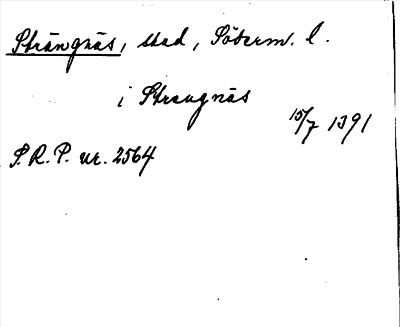 Strängnäs, stad, Söderm. l.
i Strengnäs
15/7 1391
S.R.P. nr. 2564